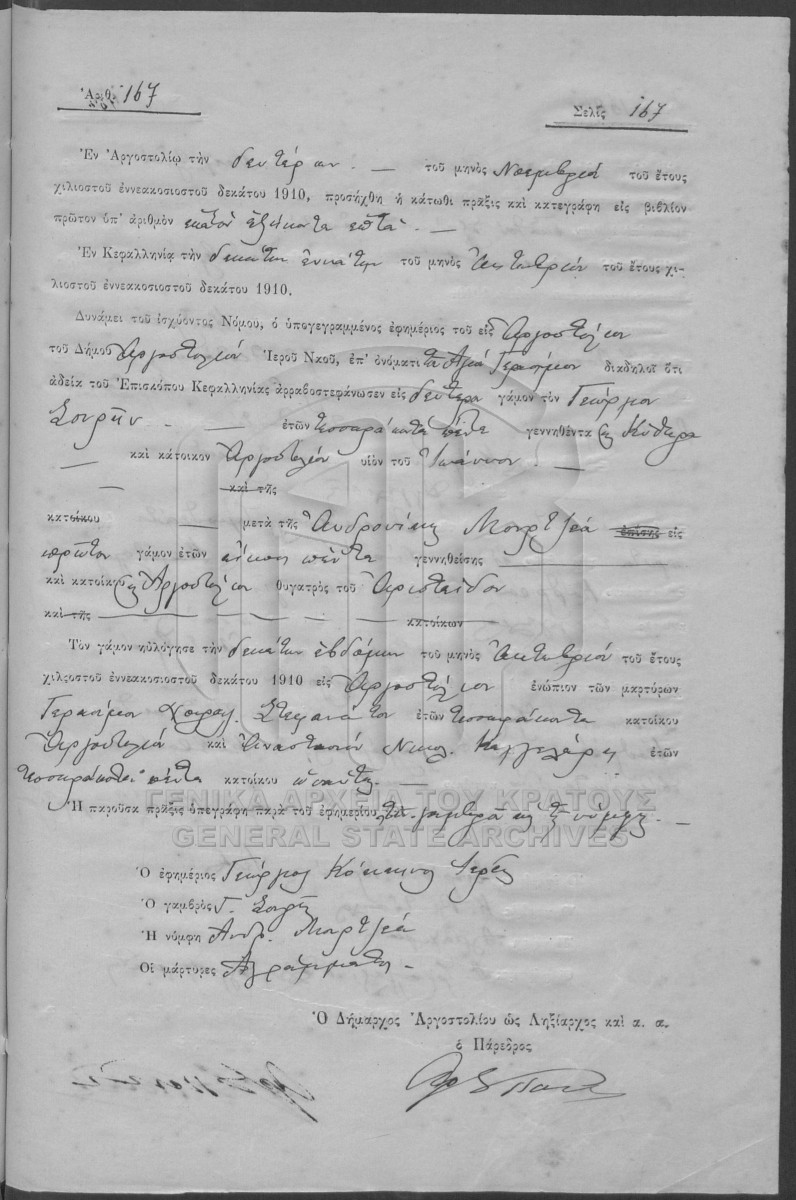 Ἀριθ. 167
Σελὶς 167
Ἐν Ἀργοστολίῳ τὴν δευτέραν τοῦ μηνὸς Νοεμβρίου τοῦ ἔτους
χιλιοστοῦ ἐννεακοσιοστοῦ δεκάτου 1910, προσήχθη ἡ κάτωθι πρᾶξις καὶ κατεγράφη εἰς βιβλίον
πρῶτον ὑπ' ἀριθμὸν ἑκατὸν ἑξήκοντα ἑπτά. —
Ἐν Κεφαλληνίᾳ τὴν δεκάτην ἐννάτην τοῦ μηνὸς Ὀκτωβρίου τοῦ ἔτους χι-
λιοστοῦ ἐννεακοσιοστοῦ δεκάτου 1910.
Δυνάμει τοῦ ἰσχύοντος Νόμου, ὁ ὑπογεγραμμένος ἐφημέριος τοῦ εἰς Ἀργοστόλιον
τοῦ Δήμου Ἀργοστολίου Ἱεροῦ Ναοῦ, ἐπ' ὀνόματι τοῦ Ἁγίου Γερασίμου διαδηλοῖ ὅτι
ἀδείᾳ τοῦ Ἐπισκόπου Κεφαλληνίας ἀρραβοστεφάνωσεν εἰς δεύτερον γάμον τὸν Γεώργιον
ἐτῶν τεσσαράκοντα πέντε γεννηθέντα εἰς Κύθηρα
— καὶ κάτοικον Ἀργοστολίου υἱὸν τοῦ Ἰωάννου —
— καὶ τῆς
κατοίκου — μετὰ τῆς Ἀνδρονίκης ἐπίσης εἰς
πρῶτον γάμον ἐτῶν εἴκοσι πέντε γεννηθείσης
καὶ κατοίκου εἰς Ἀργοστόλιον θυγατρὸς τοῦ Ἀριστείδου
καὶ τῆς — — — — — κατοίκων
Τὸν γάμον ηὐλόγησε τὴν δεκάτην ἑβδόμην τοῦ μηνὸς Ὀκτωβρίου τοῦ ἔτους
χιλιοστοῦ ἐννεακοσιοστοῦ δεκάτου 1910 εἰς Ἀργοστόλιον ἐνώπιον τῶν μαρτύρων
Γερασίμου Στεφανάτου ἐτῶν τεσσαράκοντα κατοίκου
Ἀργοστολίου καὶ Ἀναστασίου Νικολ. ἐτῶν
τεσσαράκοντα πέντε κατοίκου ὡσαύτως. —
Ἡ παροῦσα πρᾶξις ὑπεγράφη παρὰ τοῦ ἐφημερίου, τοῦ γαμβροῦ καὶ τῆς νύμφης. —
ΓΕΝΙΚΑ ΑΡΧΕΙΑ ΤΟΥ ΚΡΑΤΟΥΣ
GENERAL STATE ARCHIVES
Ὁ ἐφημέριος Γεώργιος Κόκκινος Ἱερεύς
Ὁ γαμβρὸς Γ.
Ἡ νύμφη Ανδρ.
Οἱ μάρτυρες Ἀγράμματοι —
Ὁ Δήμαρχος Ἀργοστολίου ὡς Ληξίαρχος καὶ α. α.
ὁ Πάρεδρος